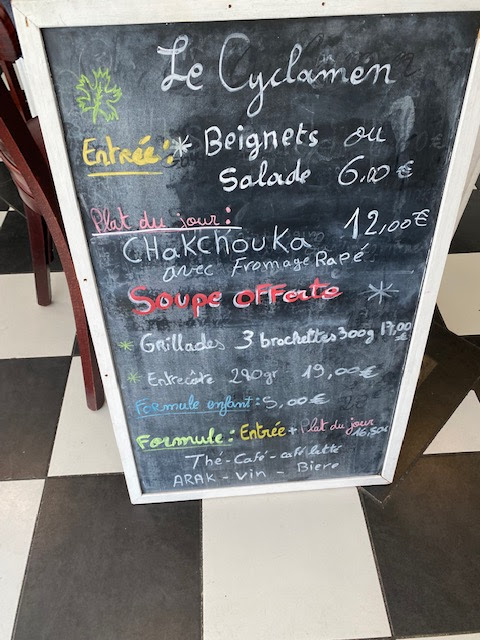 Le Cyclamen
Entrée : * Beignets ou
Salade 6.00 €
Plat du jour : 12,00€
CHAKCHOUKA
avec Fromage Rapé
Soupe offerte *
* Grillades 3 brochettes 300g 17,00 €
* Entrecôte 280gr 19,00€
Formule enfant : 5,00€
Formule : Entrée + Plat du jour 16,50€
Thé - Café - café
ARAK - Vin - Biere